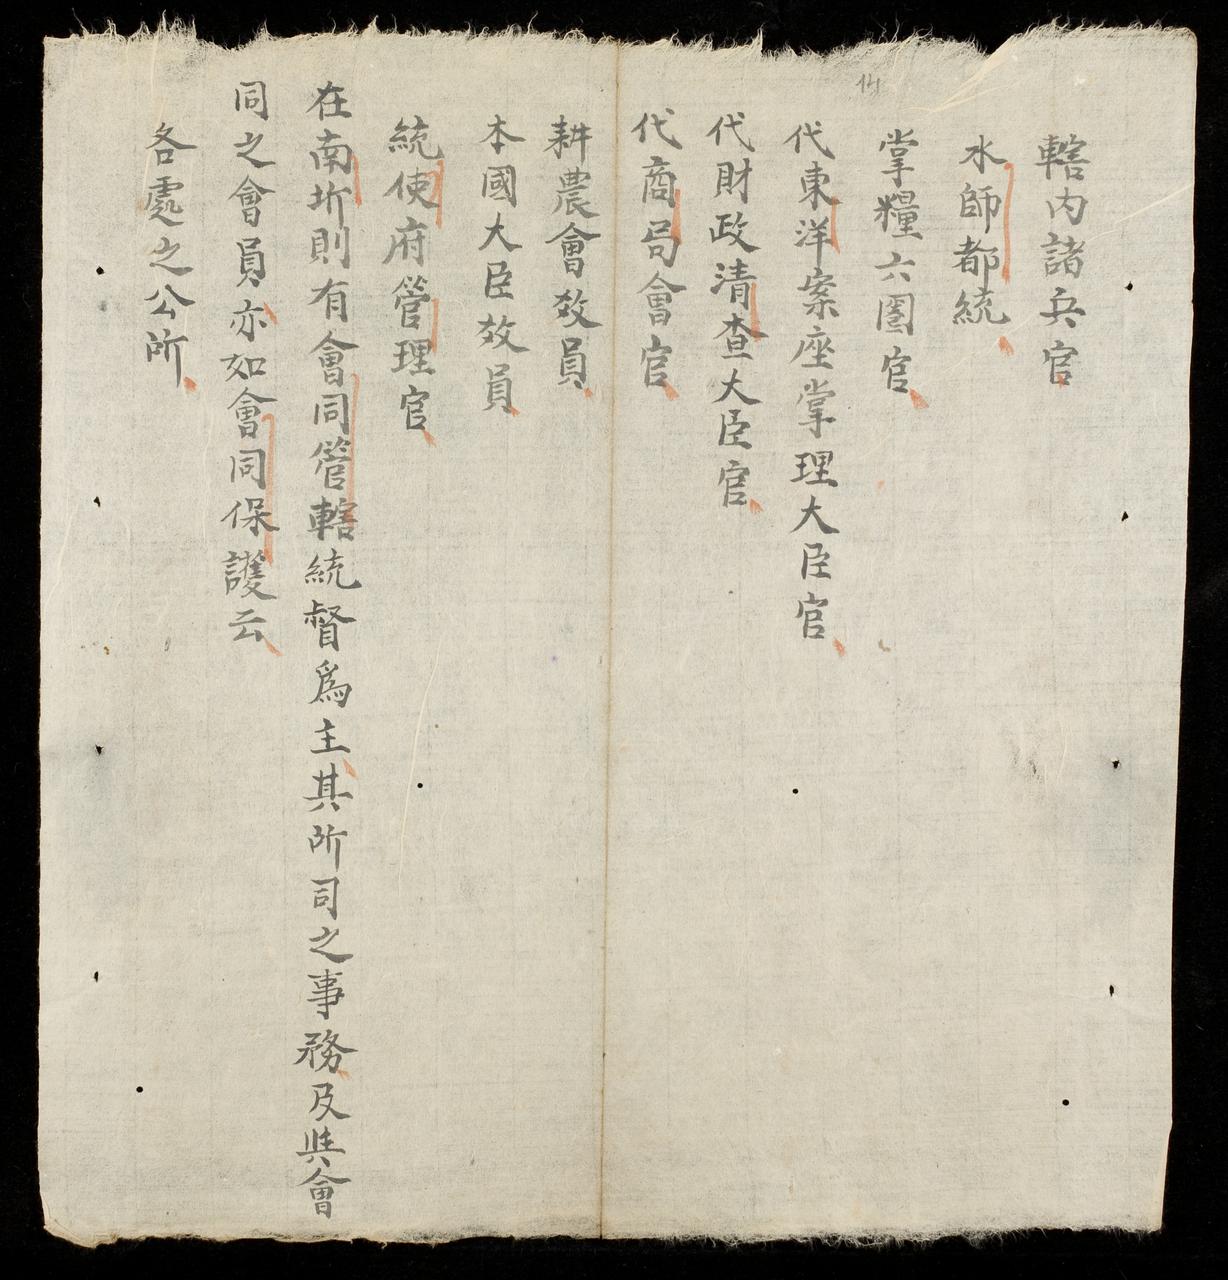 14
轄內諸兵官
水師都統
掌糧六圏官
代東洋案座掌理大臣官
代財政清查大臣官
代商局會官
耕農會效員
本國大臣效員
統使府管理官
在南圻則有會同管轄統督爲主其所司之事務及與會
同之會員亦如會同保護云
各處之公所